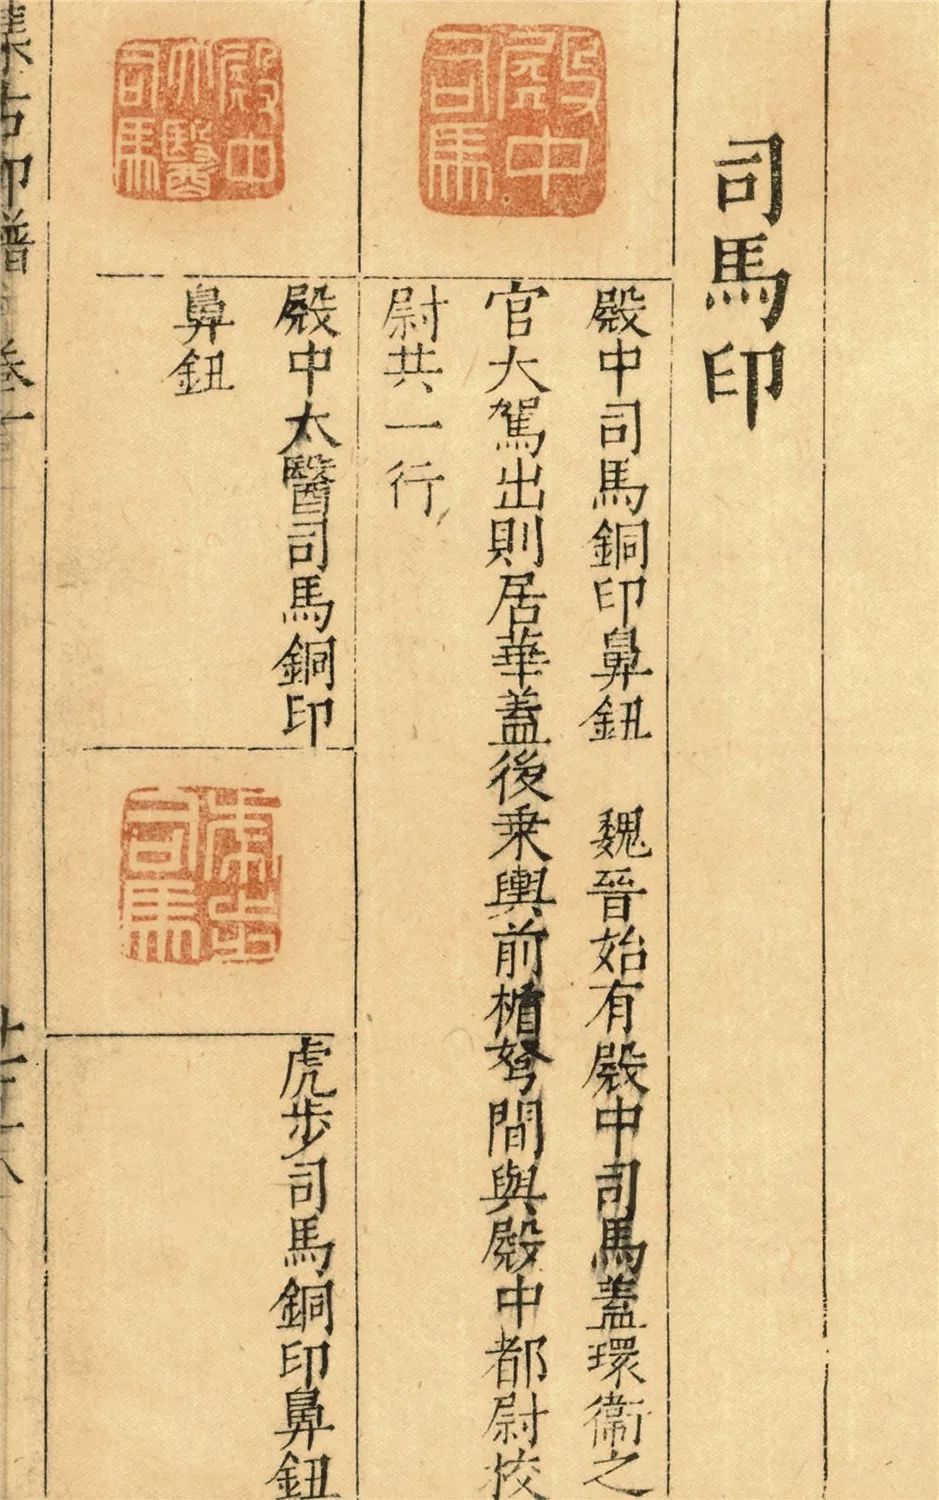 司馬印
殿中司馬
殿中司馬銅印鼻鈕　魏晉始有殿中司馬蓋環衞之
官大駕出則居華蓋後乗輿前楯弩間與殿中都尉校
尉共一行
殿中太醫司馬
殿中太醫司馬銅印
鼻鈕
虎步司馬
虎步司馬銅印鼻鈕
集古印譜
卷一